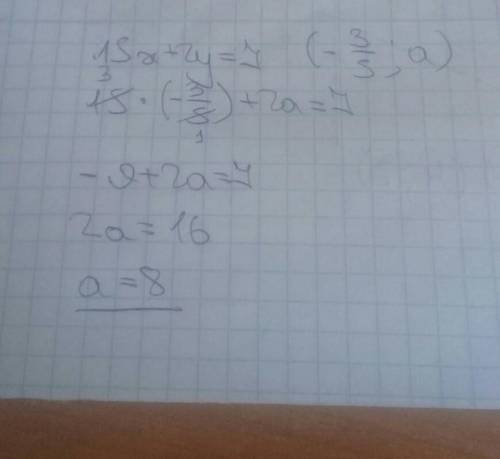 15x+2y=7 (-3/5; a)
15·(-3/5)+2a=7
-9+2a=7
2a=16
a=8